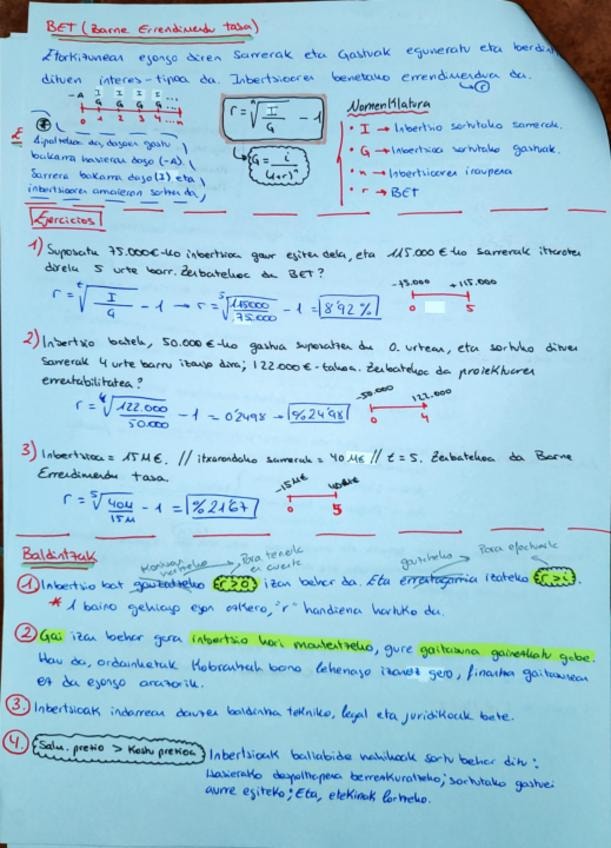 BET (Barne Errendimendu tasa)
Etorkizunean egongo diren Sarrerak eta Gastuak eguneratu eta berdin
dituen interes-tipoa da. Inbertsioaren benetako errendimendua da.
(r)
-A I I I I ...
G G G G ...
0 1 2 3 4 ... n
dagoen gastu
bakarra hasieran dago (-A).
Sarrera bakarra dago (I) eta
inbertsioaren amaieran sortzen da,
r = ⁿ√(I/G) - 1
G = i/(1+r)ⁿ
Nomenklatura
• I → Inbertsio sortutako sarrerak.
• G → Inbertsioa sortutako gastuak.
• n → Inbertsioaren iraupena
• r → BET
Ejercicios
1) Suposatu 75.000€-ko inbertsioa gaur egiten dela, eta 115.000€-ko sarrerak itxaroten
direla 5 urte barr. Zenbatekoa da BET?
r = ᵗ√(I/G) - 1 → r = ⁵√(115000/75.000) - 1 = 8'92 %
-75.000 +115.000
0 5
2) Inbertsio batek, 50.000€-ko gastua suposatzen du 0. urtean, eta sortuko dituen
sarrerak 4 urte barru izango dira; 122.000€-takoa. Zenbatekoa da proiektuaren
errentabilitatea?
r = ⁴√(122.000/50.000) - 1 = 0'2498 → %24'98
-50.000 122.000
0 4
3) Inbertsioa = 15M€. // itxarondako sarrerak = 40M€ // t = 5. Zenbatekoa da Barne
Errendimendu tasa.
r = ⁵√(40M/15M) - 1 = %21'67
-15M€ 40M€
0 5
Baldintzak
Para tenerla en cuenta
gauzteko Para efectuarla
1. Inbertsio bat gauzatzeko r>0 izan behar da. Eta errentagarria izateko r>i.
* 1 baino gehiago egon ezkero, "r" handiena hartuko da.
2 Gai izan behar gara inbertsio hori mantentzeko, gure gaitasuna gainezkatu gabe.
Hau da, ordainketak kobrantzak baino lehenago izanez gero, finantza gaitasunean
ez da egongo arazorik.
3. Inbertsioak indarrean dauden baldintza tekniko, legal eta juridikoak bete.
4. Salm. prezio > Kostu prezioa Inbertsioak baliabide nahikoak sortu behar ditu:
Hasierako despoltapena berreskuratzeko; sortutako gastuei
aurre egiteko; Eta, etekinak lortzeko.